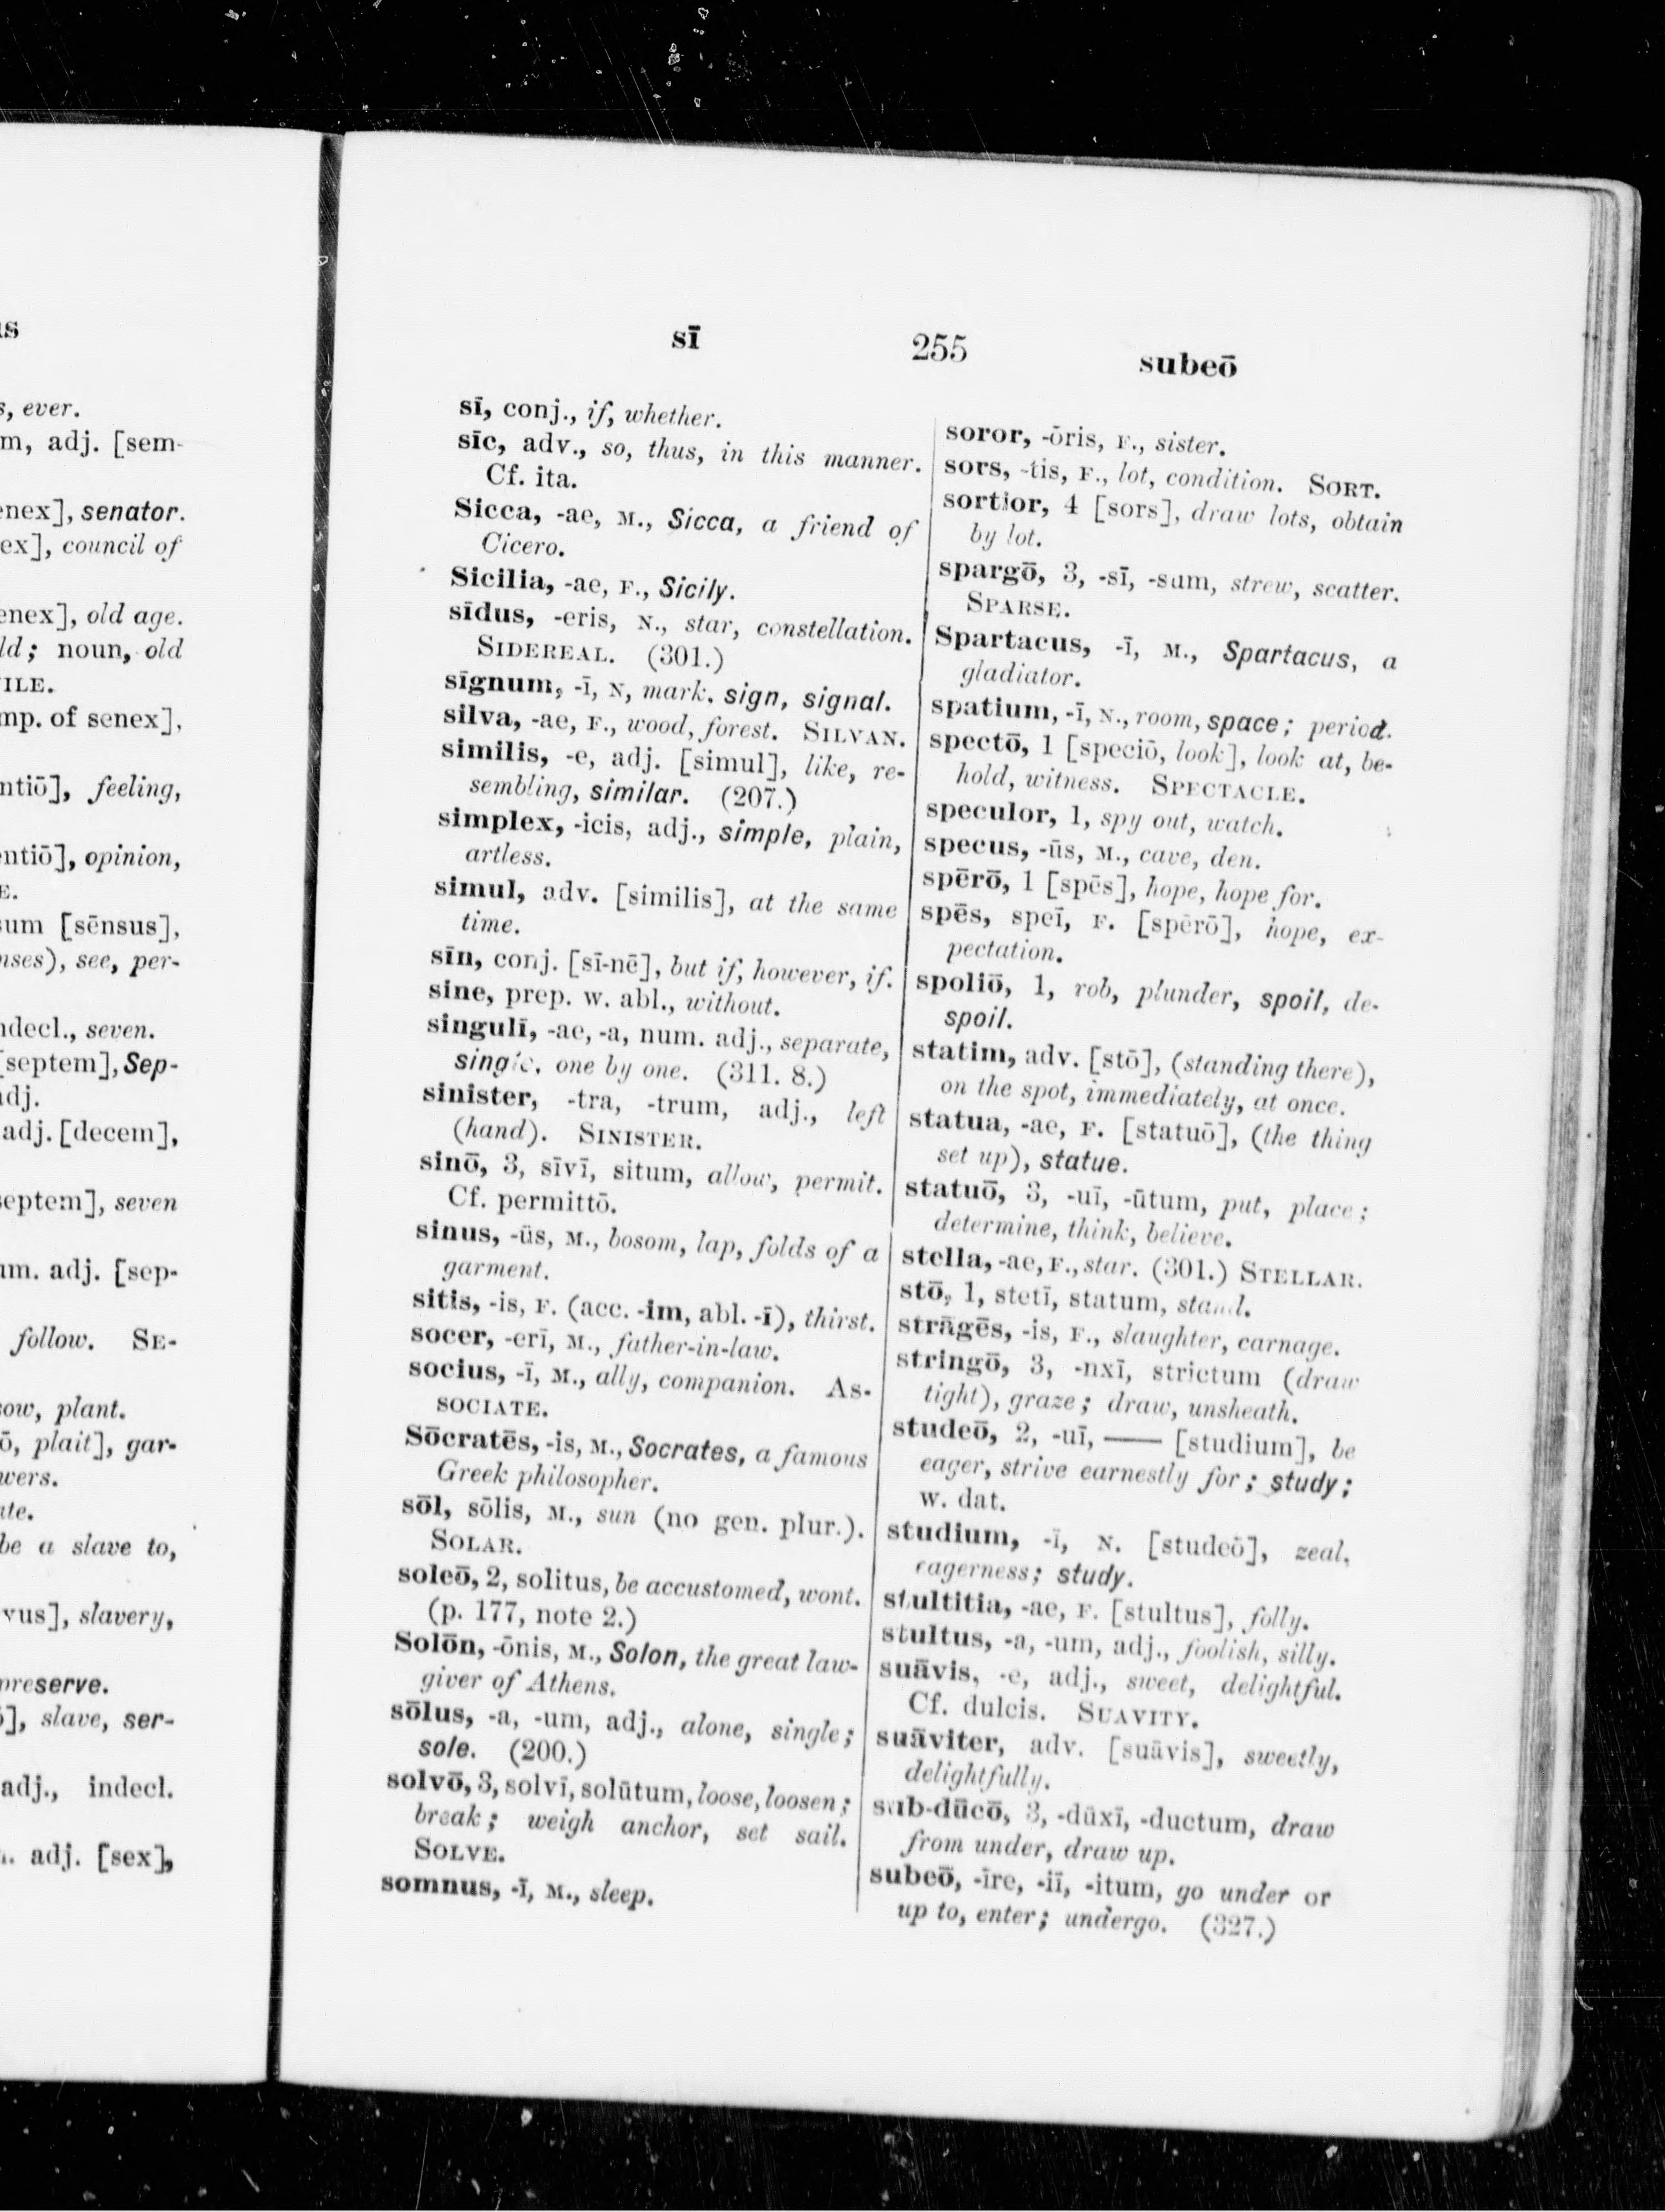 s, ever.
m, adj. [sem-
enex], senator.
ex], council of
enex], old age.
ld; noun, old
ILE.
mp. of senex],
ntiō], feeling,
entiō], opinion,
E.
sum [sēnsus],
nses), see, per-
ndecl., seven.
[septem], Sep-
adj.
adj. [decem],
septem], seven
um. adj. [sep-
follow. SE-
sow, plant.
ō, plait], gar-
wers.
ate.
be a slave to,
vus], slavery,
preserve.
ō], slave, ser-
adj., indecl.
adj. [sex],
sī 255 subeō
sī, conj., if, whether.
sīc, adv., so, thus, in this manner.
Cf. ita.
Sicca, -ae, M., Sicca, a friend of
Cicero.
Sicilia, -ae, F., Sicily.
sīdus, -eris, N., star, constellation.
SIDEREAL. (301.)
sīgnum, -ī, N, mark, sign, signal.
silva, -ae, F., wood, forest. SILVAN.
similis, -e, adj. [simul], like, re-
sembling, similar. (207.)
simplex, -icis, adj., simple, plain,
artless.
simul, adv. [similis], at the same
time.
sīn, conj. [sī-nē], but if, however, if.
sine, prep. w. abl., without.
singulī, -ae, -a, num. adj., separate,
single, one by one. (311. 8.)
sinister, -tra, -trum, adj., left
(hand). SINISTER.
sinō, 3, sīvī, situm, allow, permit.
Cf. permittō.
sinus, -ūs, M., bosom, lap, folds of a
garment.
sitis, -is, F. (acc. -im, abl. -ī), thirst.
socer, -erī, M., father-in-law.
socius, -ī, M., ally, companion. AS-
SOCIATE.
Sōcratēs, -is, M., Socrates, a famous
Greek philosopher.
sōl, sōlis, M., sun (no gen. plur.).
SOLAR.
soleō, 2, solitus, be accustomed, wont.
(p. 177, note 2.)
Solōn, -ōnis, M., Solon, the great law-
giver of Athens.
sōlus, -a, -um, adj., alone, single;
sole. (200.)
solvō, 3, solvī, solūtum, loose, loosen;
break; weigh anchor, set sail.
SOLVE.
somnus, -ī, M., sleep.
soror, -ōris, F., sister.
sors, -tis, F., lot, condition. SORT.
sortior, 4 [sors], draw lots, obtain
by lot.
spargō, 3, -sī, -sum, strew, scatter.
SPARSE.
Spartacus, -ī, M., Spartacus, a
gladiator.
spatium, -ī, N., room, space; period.
spectō, 1 [speciō, look], look at, be-
hold, witness. SPECTACLE.
speculor, 1, spy out, watch.
specus, -ūs, M., cave, den.
spērō, 1 [spēs], hope, hope for.
spēs, speī, F. [spērō], hope, ex-
pectation.
spoliō, 1, rob, plunder, spoil, de-
spoil.
statim, adv. [stō], (standing there),
on the spot, immediately, at once.
statua, -ae, F. [statuō], (the thing
set up), statue.
statuō, 3, -uī, -ūtum, put, place;
determine, think, believe.
stella, -ae, F., star. (301.) STELLAR.
stō, 1, stetī, statum, stand.
strāgēs, -is, F., slaughter, carnage.
stringō, 3, -nxī, strictum (draw
tight), graze; draw, unsheath.
studeō, 2, -uī, —— [studium], be
eager, strive earnestly for; study;
w. dat.
studium, -ī, N. [studeō], zeal,
eagerness; study.
stultitia, -ae, F. [stultus], folly.
stultus, -a, -um, adj., foolish, silly.
suāvis, -e, adj., sweet, delightful.
Cf. dulcis. SUAVITY.
suāviter, adv. [suāvis], sweetly,
delightfully.
sub-dūcō, 3, -dūxī, -ductum, draw
from under, draw up.
subeō, -īre, -iī, -itum, go under or
up to, enter; undergo. (327.)